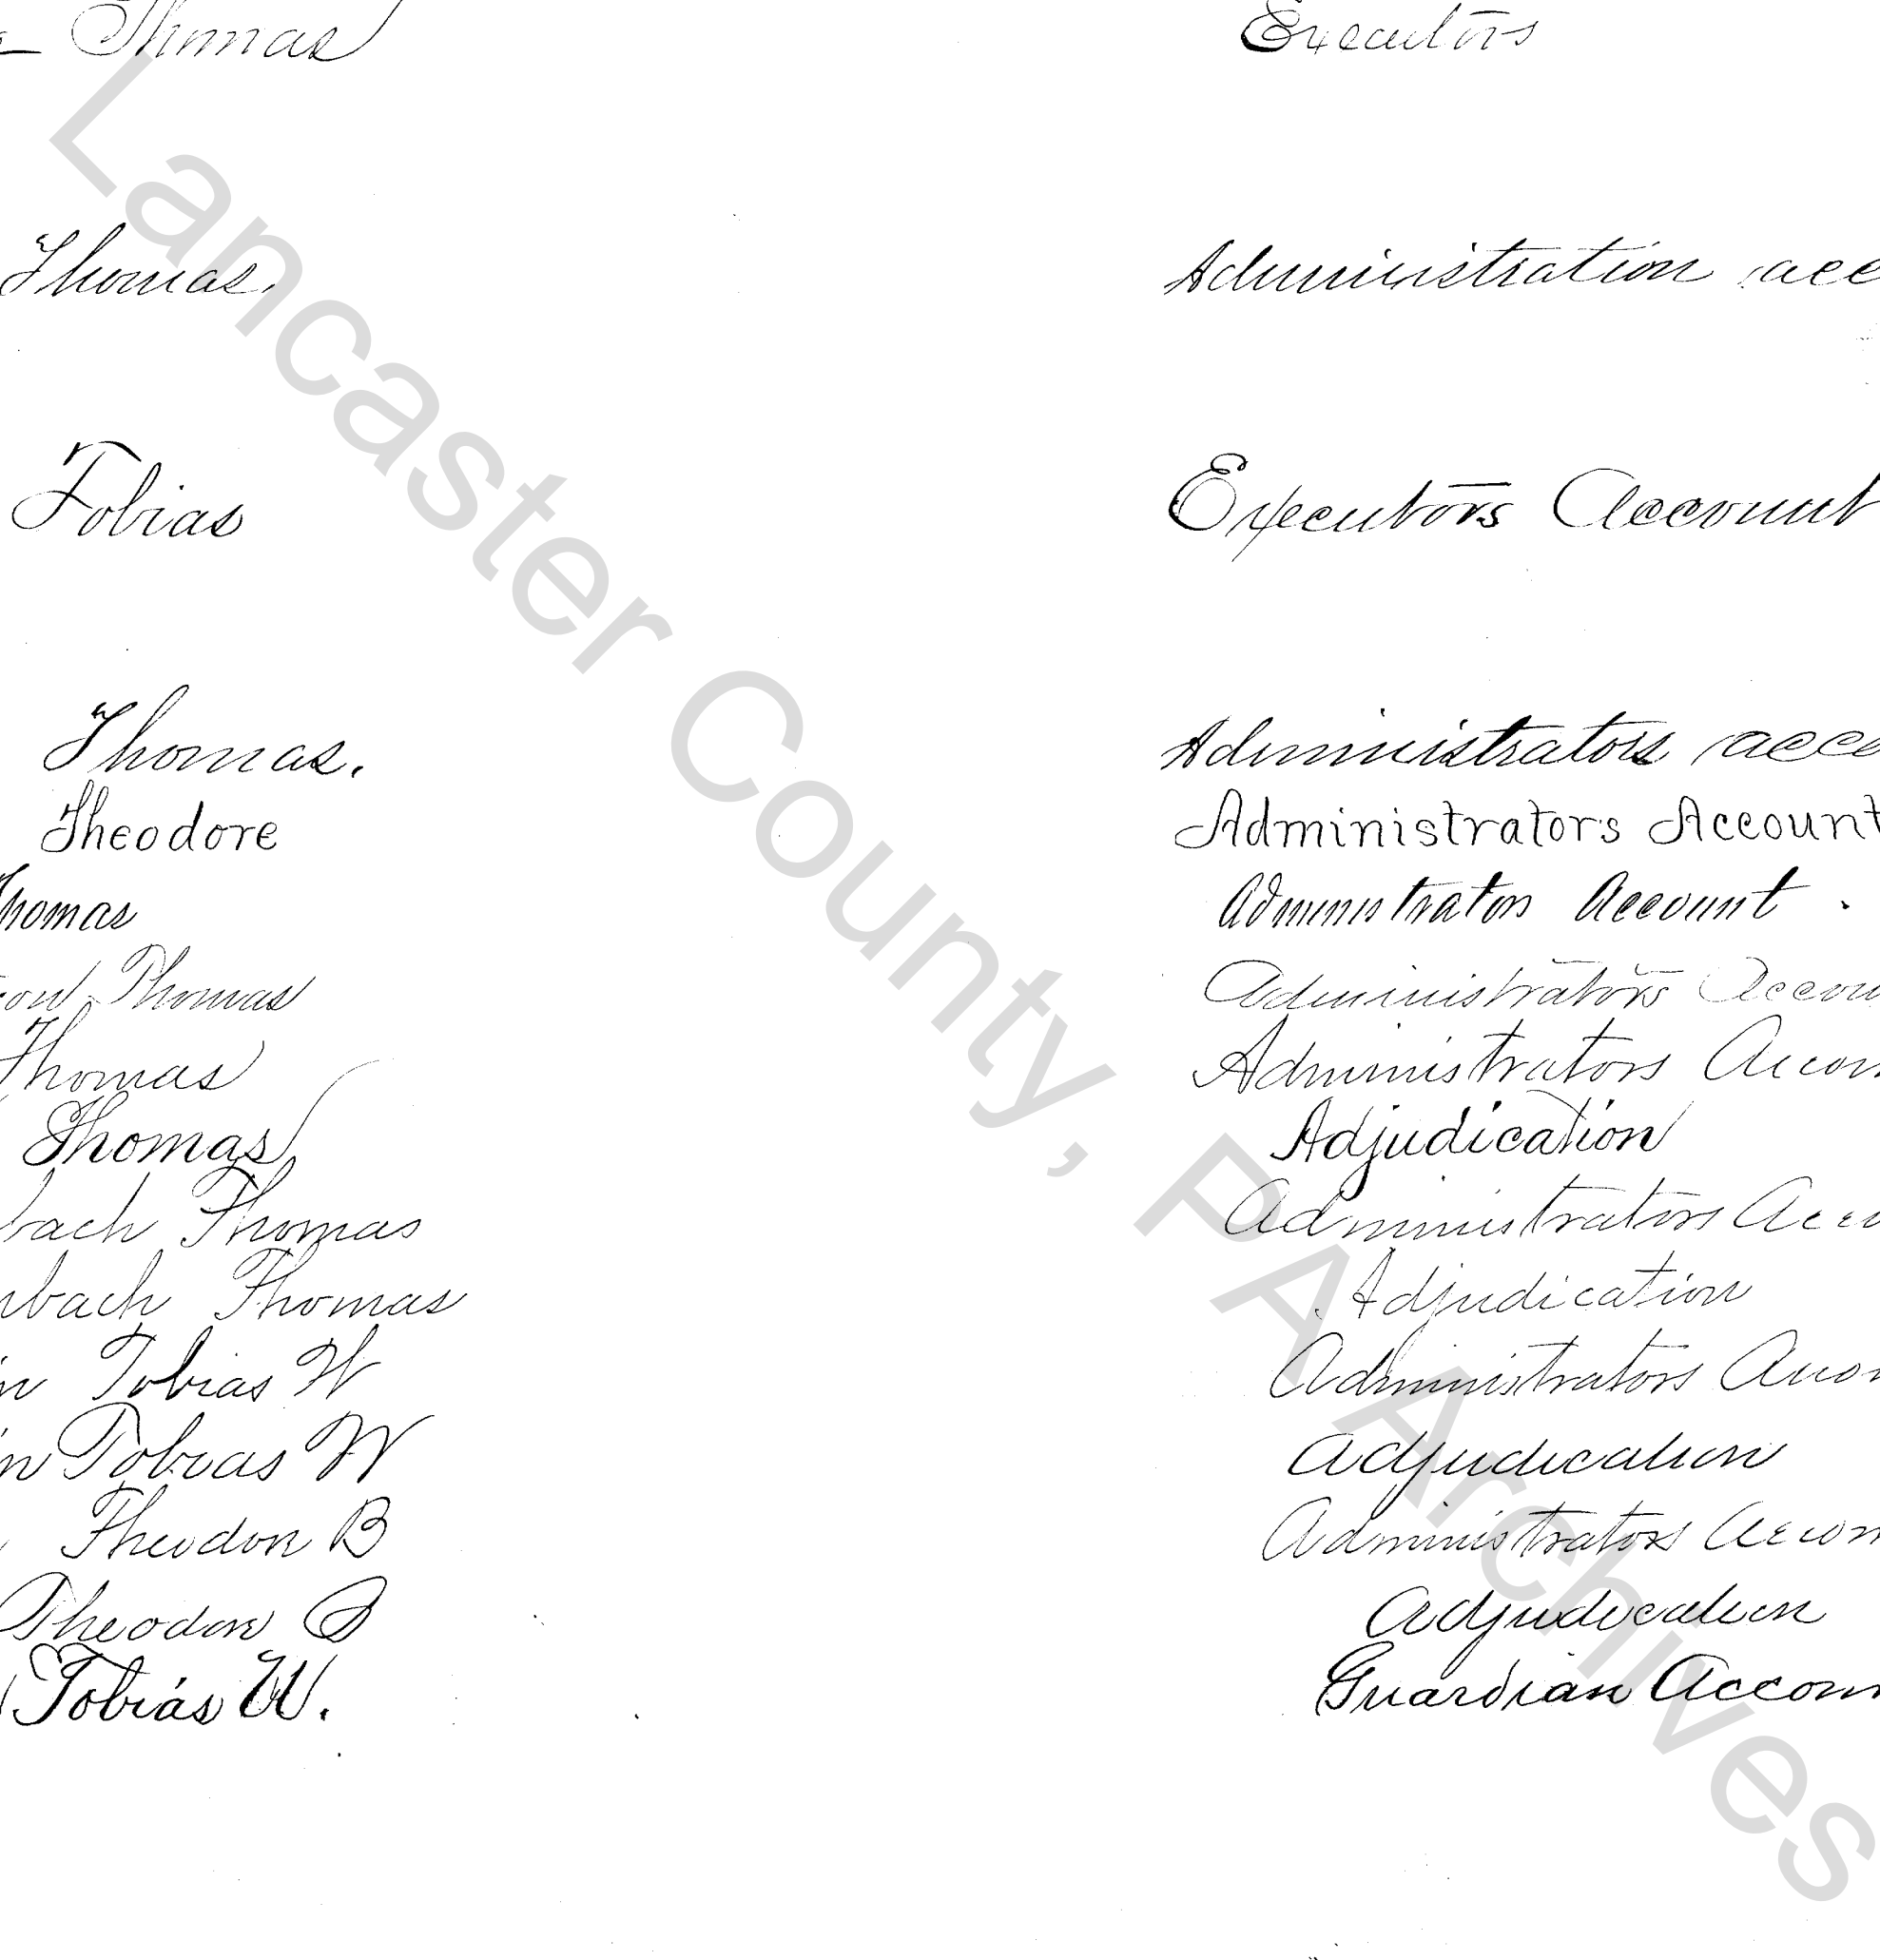 Thomas Executors
Thomas. Administration acc
Tobias Executors Account
Thomas. Administrators acco
Theodore Administrators Account
Thomas Administrators Account.
Thomas Administrators Accou
Thomas Administrators Accou
Thomas Adjudication
bach Thomas Administrators Acco
bach Thomas Adjudication
Tobias W Administrators Accou
Tobias W Adjudication
Theodore B Administrators Accou
Theodore B Adjudication
Tobias W. Guardian Accoun
Lancaster County, PA Archives